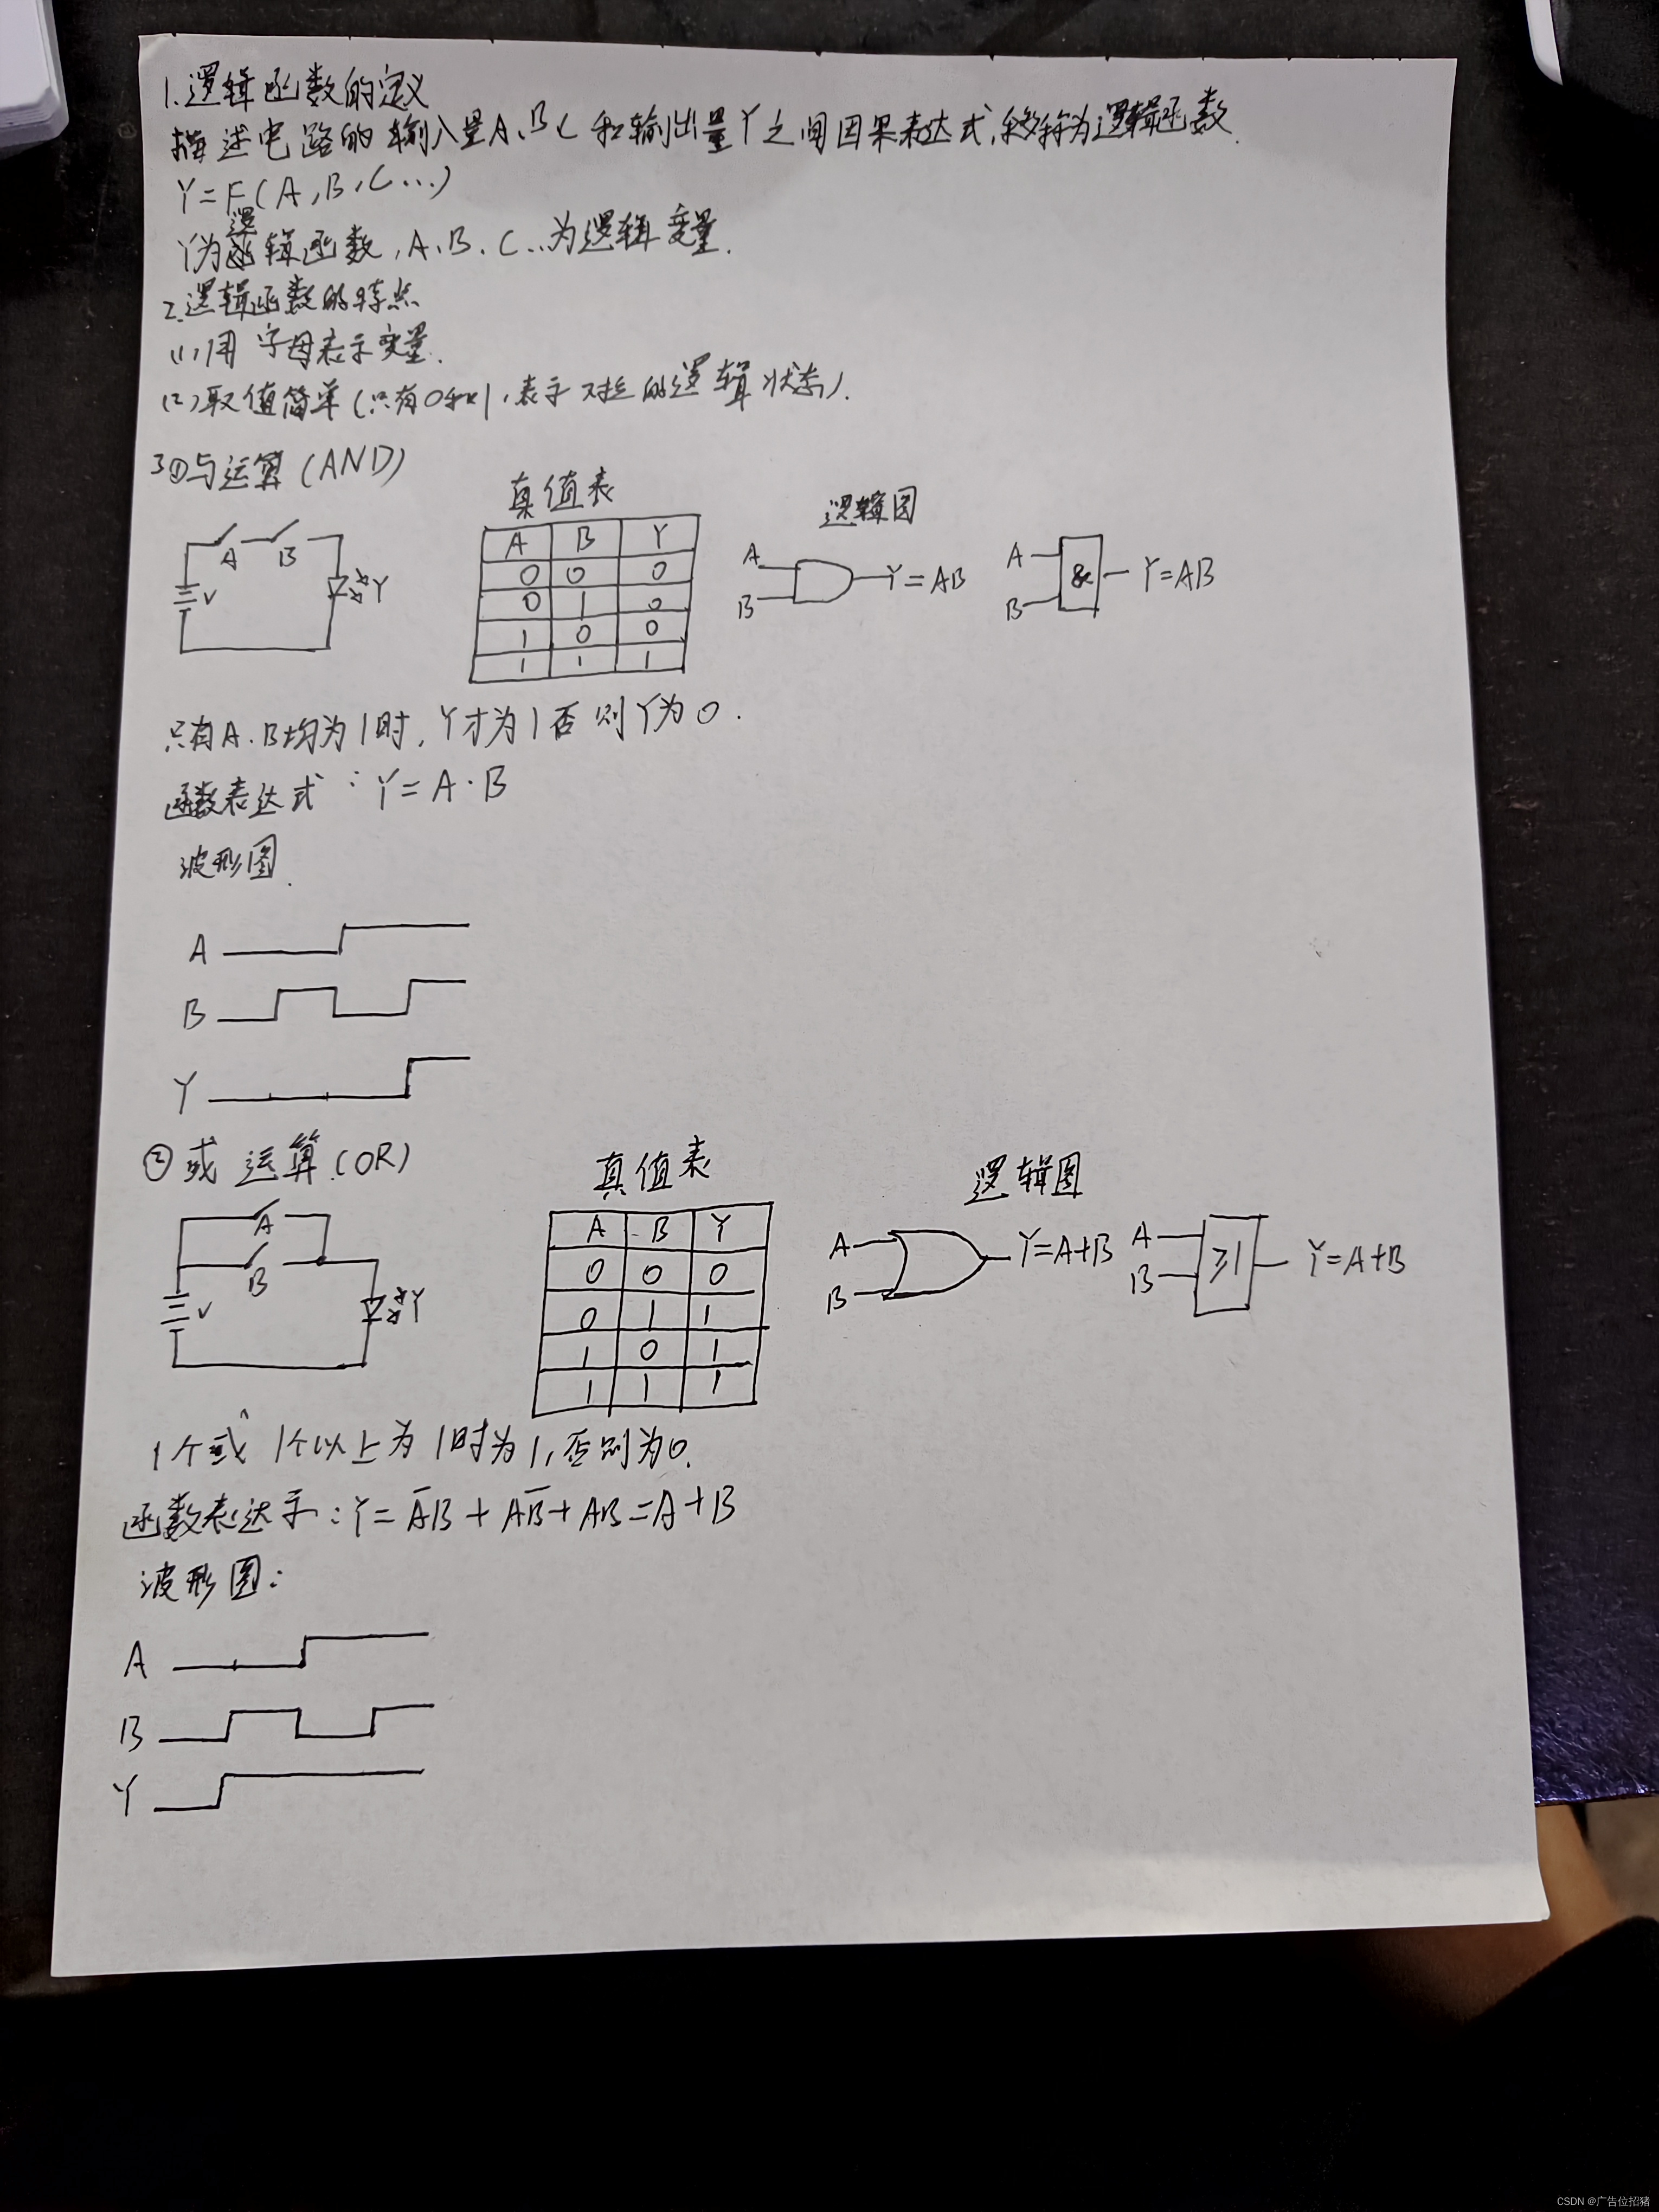 1.逻辑函数的定义
描述电路的输入量A、B、C和输出量Y之间因果表达式,称为逻辑函数.
Y=F(A,B,C...)
逻
Y为辑函数,A、B、C...为逻辑变量.
2.逻辑函数的特点
(1)用字母表示变量.
(2)取值简单(只有0和1,表示对立的逻辑状态).
3①与运算(AND)
真值表
逻辑图
A B
V
Y
A B Y
0 0 0
0 1 0
1 0 0
1 1 1
A
B
Y=AB
A
B
&
Y=AB
只有A.B均为1时,Y才为1否则Y为0.
函数表达式:Y=A·B
波形图.
A
B
Y
②或运算(OR)
真值表
逻辑图
A
B
V
Y
A B Y
0 0 0
0 1 1
1 0 1
1 1 1
A
B
Y=A+B
A
B
≥1
Y=A+B
1个或1个以上为1时为1,否则为0.
函数表达示:Y=A̅B+AB̅+AB=A+B
波形图:
A
B
Y
CSDN @广告位招猪